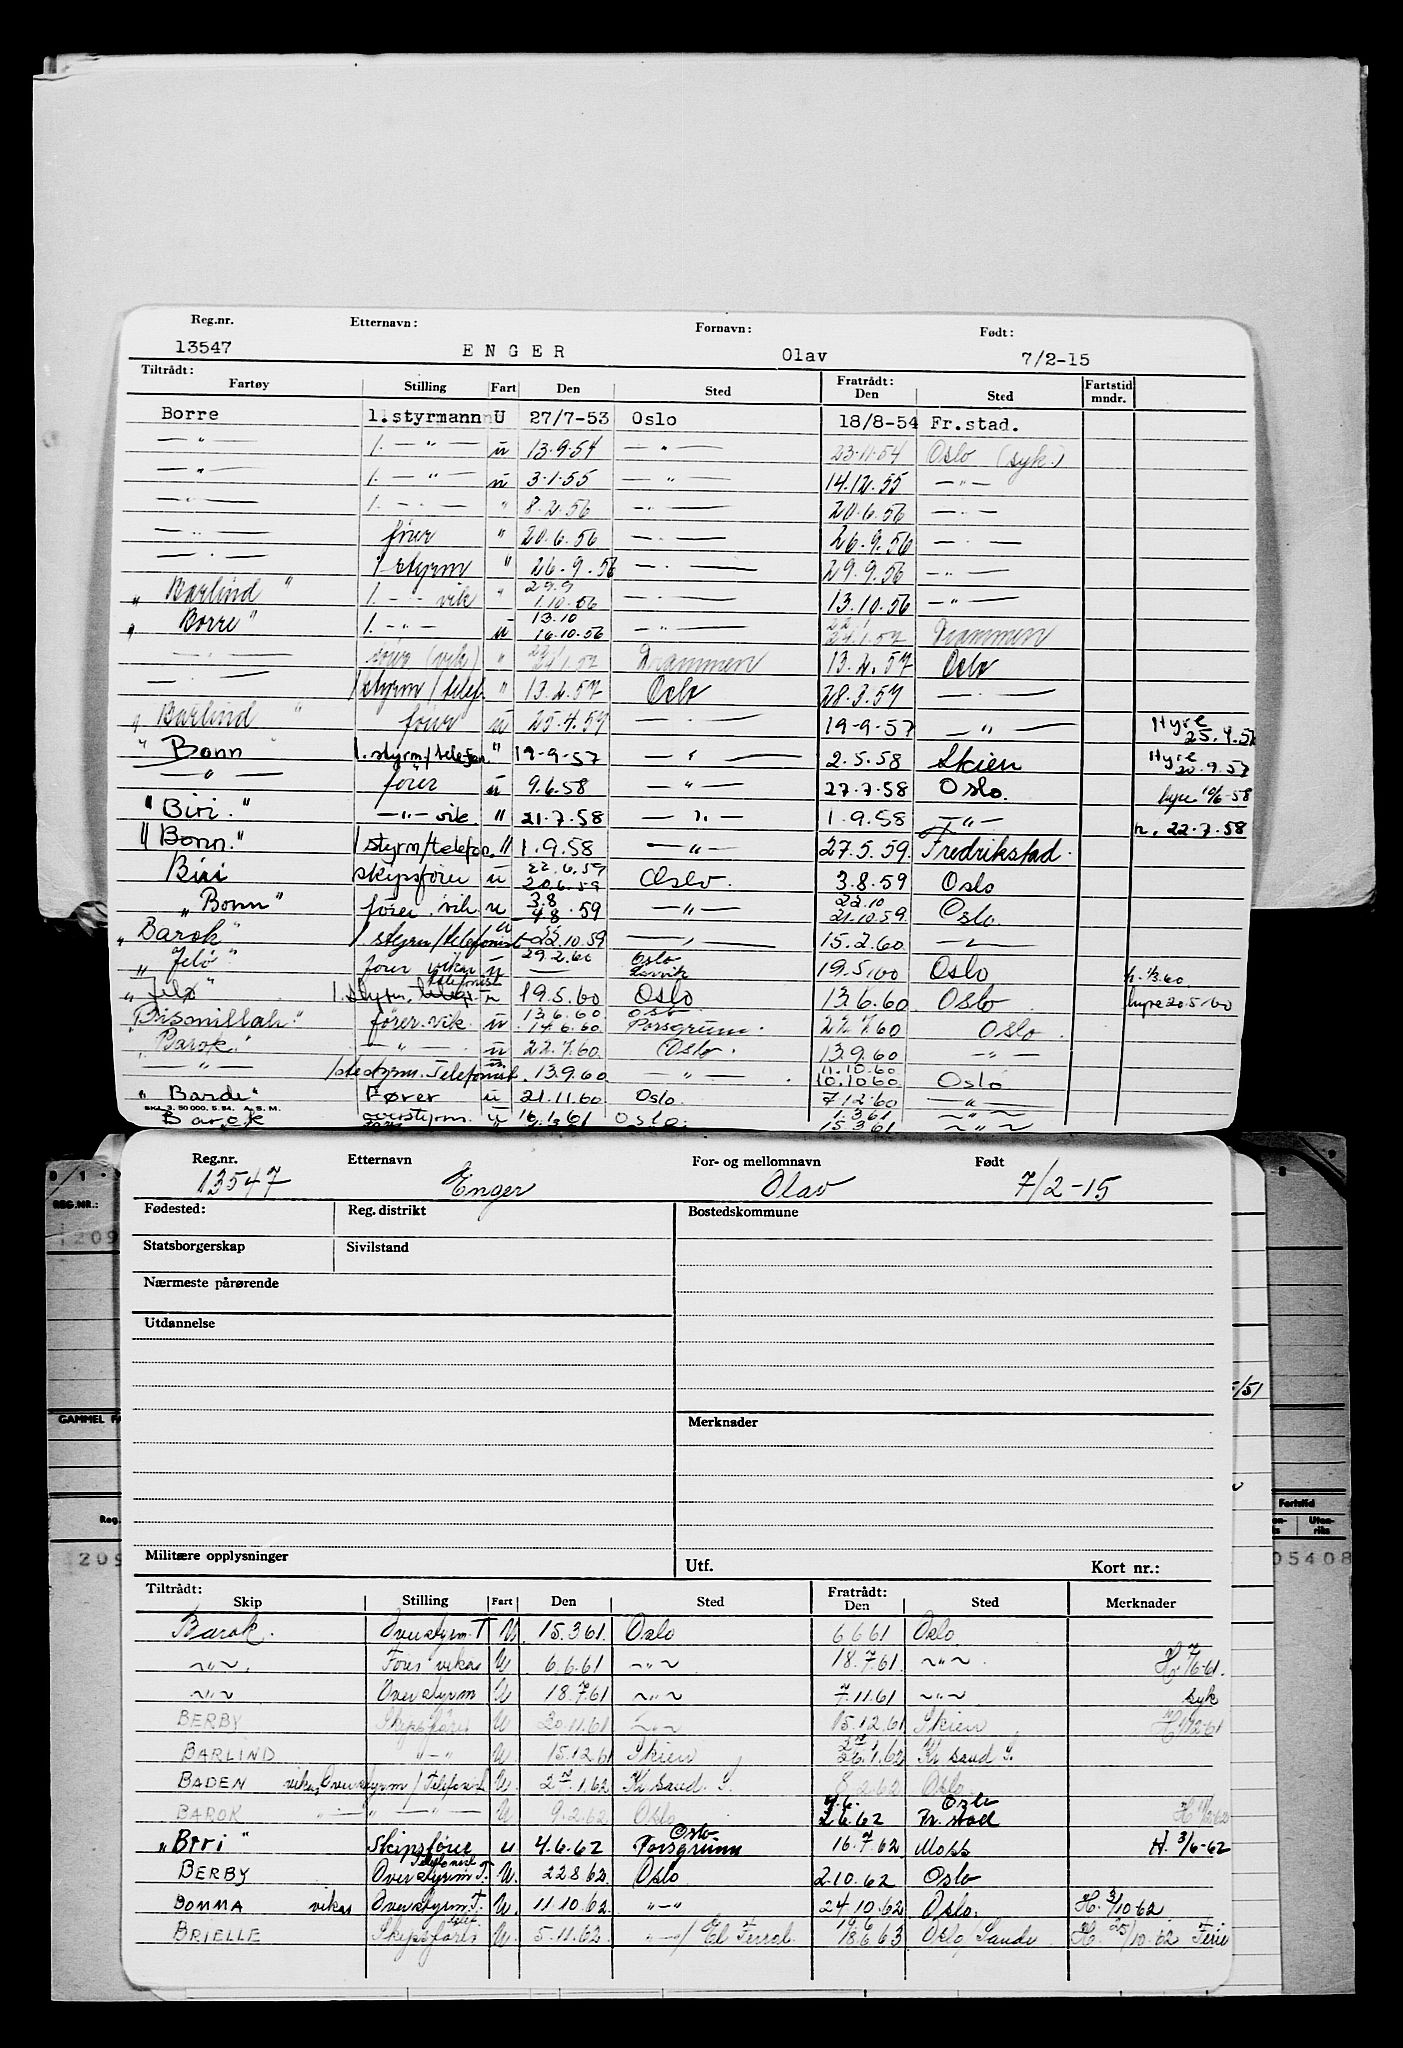 Reg.nr. Etternavn: Fornavn: Født:
13547 ENGER Olav 7/2-15
Tiltrådt: Fratrådt: Fartstid
Fartøy Stilling Fart Den Sted Den Sted mndr.
Borre 1.styrmann U 27/7-53 Oslo 18/8-54 Fr.stad.
—"— 1. —"— u 13.9.54 —"— 23.11.54 Oslo (syk.)
—"— 1. —"— u 3.1.55 —"— 14.12.55 —"—
—"— 1. —"— " 8.2.56 —"— 20.6.56 —"—
—"— fører " 20.6.56 —"— 26.9.56 —"—
—"— 1 styrm " 26.9.56 —"— 29.9.56 —"—
"Barlind" 1. —"— vik " 29.9 1.10.56 —"— 13.10.56 —"—
"Borre" 1. —"— u 13.10 16.10.56 —"— 24.1.57 Drammen
—"— fører (vik) " 24.1.57 Drammen 13.2.57 Oslo
—"— 1 styrm/telef. " 13.2.57 Oslo 28.3.57 —"—
"Barlind" fører u 25.4.57 —"— 19-9-57 —"— Hyre 25.4.57
"Bonn" 1. styrm/telefon. " 19-9-57 —"— 2.5.58 Skien Hyre 20.9.57
—"— fører u 9.6.58 —"— 27.7.58 Oslo. hyre 10/6-58
"Biri." —"— vik. " 21.7.58 —"— 1.9.58 —"— h. 22.7.58
"Bonn." 1 styrm/telefon. " 1.9.58 —"— 27.5.59. Fredrikstad.
Biri skipsfører u 22.6.59 20.6.59 Oslo. 3.8.59 Oslo
"Bonn" fører. vik. u 3.8 4.8.59 —"— 22.10 21.10.59. Oslo.
"Barok" 1 styrm/telefonist u 22.10.59 —"— 15.2.60 —"—
"Jelø" fører vikar u 29.2.60 — Oslo Larvik 19.5.60 Oslo h. 1/3.60
"Jelø" 1. styrm. telefonist u 19.5.60 Oslo 13.6.60 Oslo hyre 20.5.60
"Bismillah." fører.vik. u 13.6.60 14.6.60 Oslo Porsgrunn. 22.7.60 Oslo.
"Barok." —"— u 22.7.60 Oslo. 13.9.60 —"—
—"— 1ste styrm. Telefonist u. 13.9.60 —"—. 11.10.60 10.10.60 Oslo
"Barde" Fører u 21.11.60 Oslo. 7.12.60 —"—
SKJ. 3. 50 000. 5. 54. A. S. M.
Barok overstyrm. u 16.1.61 Oslo. 1.3.61 15.3.61 —"—
Reg.nr. Etternavn For- og mellomnavn Født
13547 Enger Olav 7/2-15
Fødested: Reg. distrikt Bostedskommune
Statsborgerskap Sivilstand
Nærmeste pårørende
Utdannelse
Merknader
Militære opplysninger Utf. Kort nr.:
Tiltrådt: Fratrådt:
Skip Stilling Fart Den Sted Den Sted Merknader
Barok. Overstyrm. T U. 15.3.61. Oslo 6.6.61 Oslo.
—"—. Fører vikar U 6.6.61 —"— 18.7.61. —"—. H. 7/6-61.
—"— Overstyrm U 18.7.61 —"— 7.11.61 —"— syk
BERBY Skipsfører U 20.11.61 —"— 15.12.61 Skien
BARLIND —"— U. 15.12.61 Skien 26.1.62 Kr sand S.
BADEN vikar Overstyrm/Telefonist U. 27.1.62 Kr sand. S. 8.2.62 Oslo.
BAROK —"— —"— U 9.2.62 Oslo 4.6. 2.6.62 Oslo Fr. stad
"Biri" Skipsfører u 4.6.62 Oslo Porsgrunn 16.7.62 Moss H. 3/6-62
BERBY Overstyrm Telefonist T. U. 22.8.62 Oslo 2.10.62 Oslo
BOMMA vikar Overstyrm T. U. 11.10.62 —"— 24.10.62 Oslo. H. 3/10.62
BRIELLE Skipsfører telef. U. 5.11.62 —"—/El Ferrol. 19.6 18.6.63 Oslo/Sande H. 25/10.62 Ferie
REG.NR.:
GAMMEL
Reg.
Fartstid
Uten-riks
05408